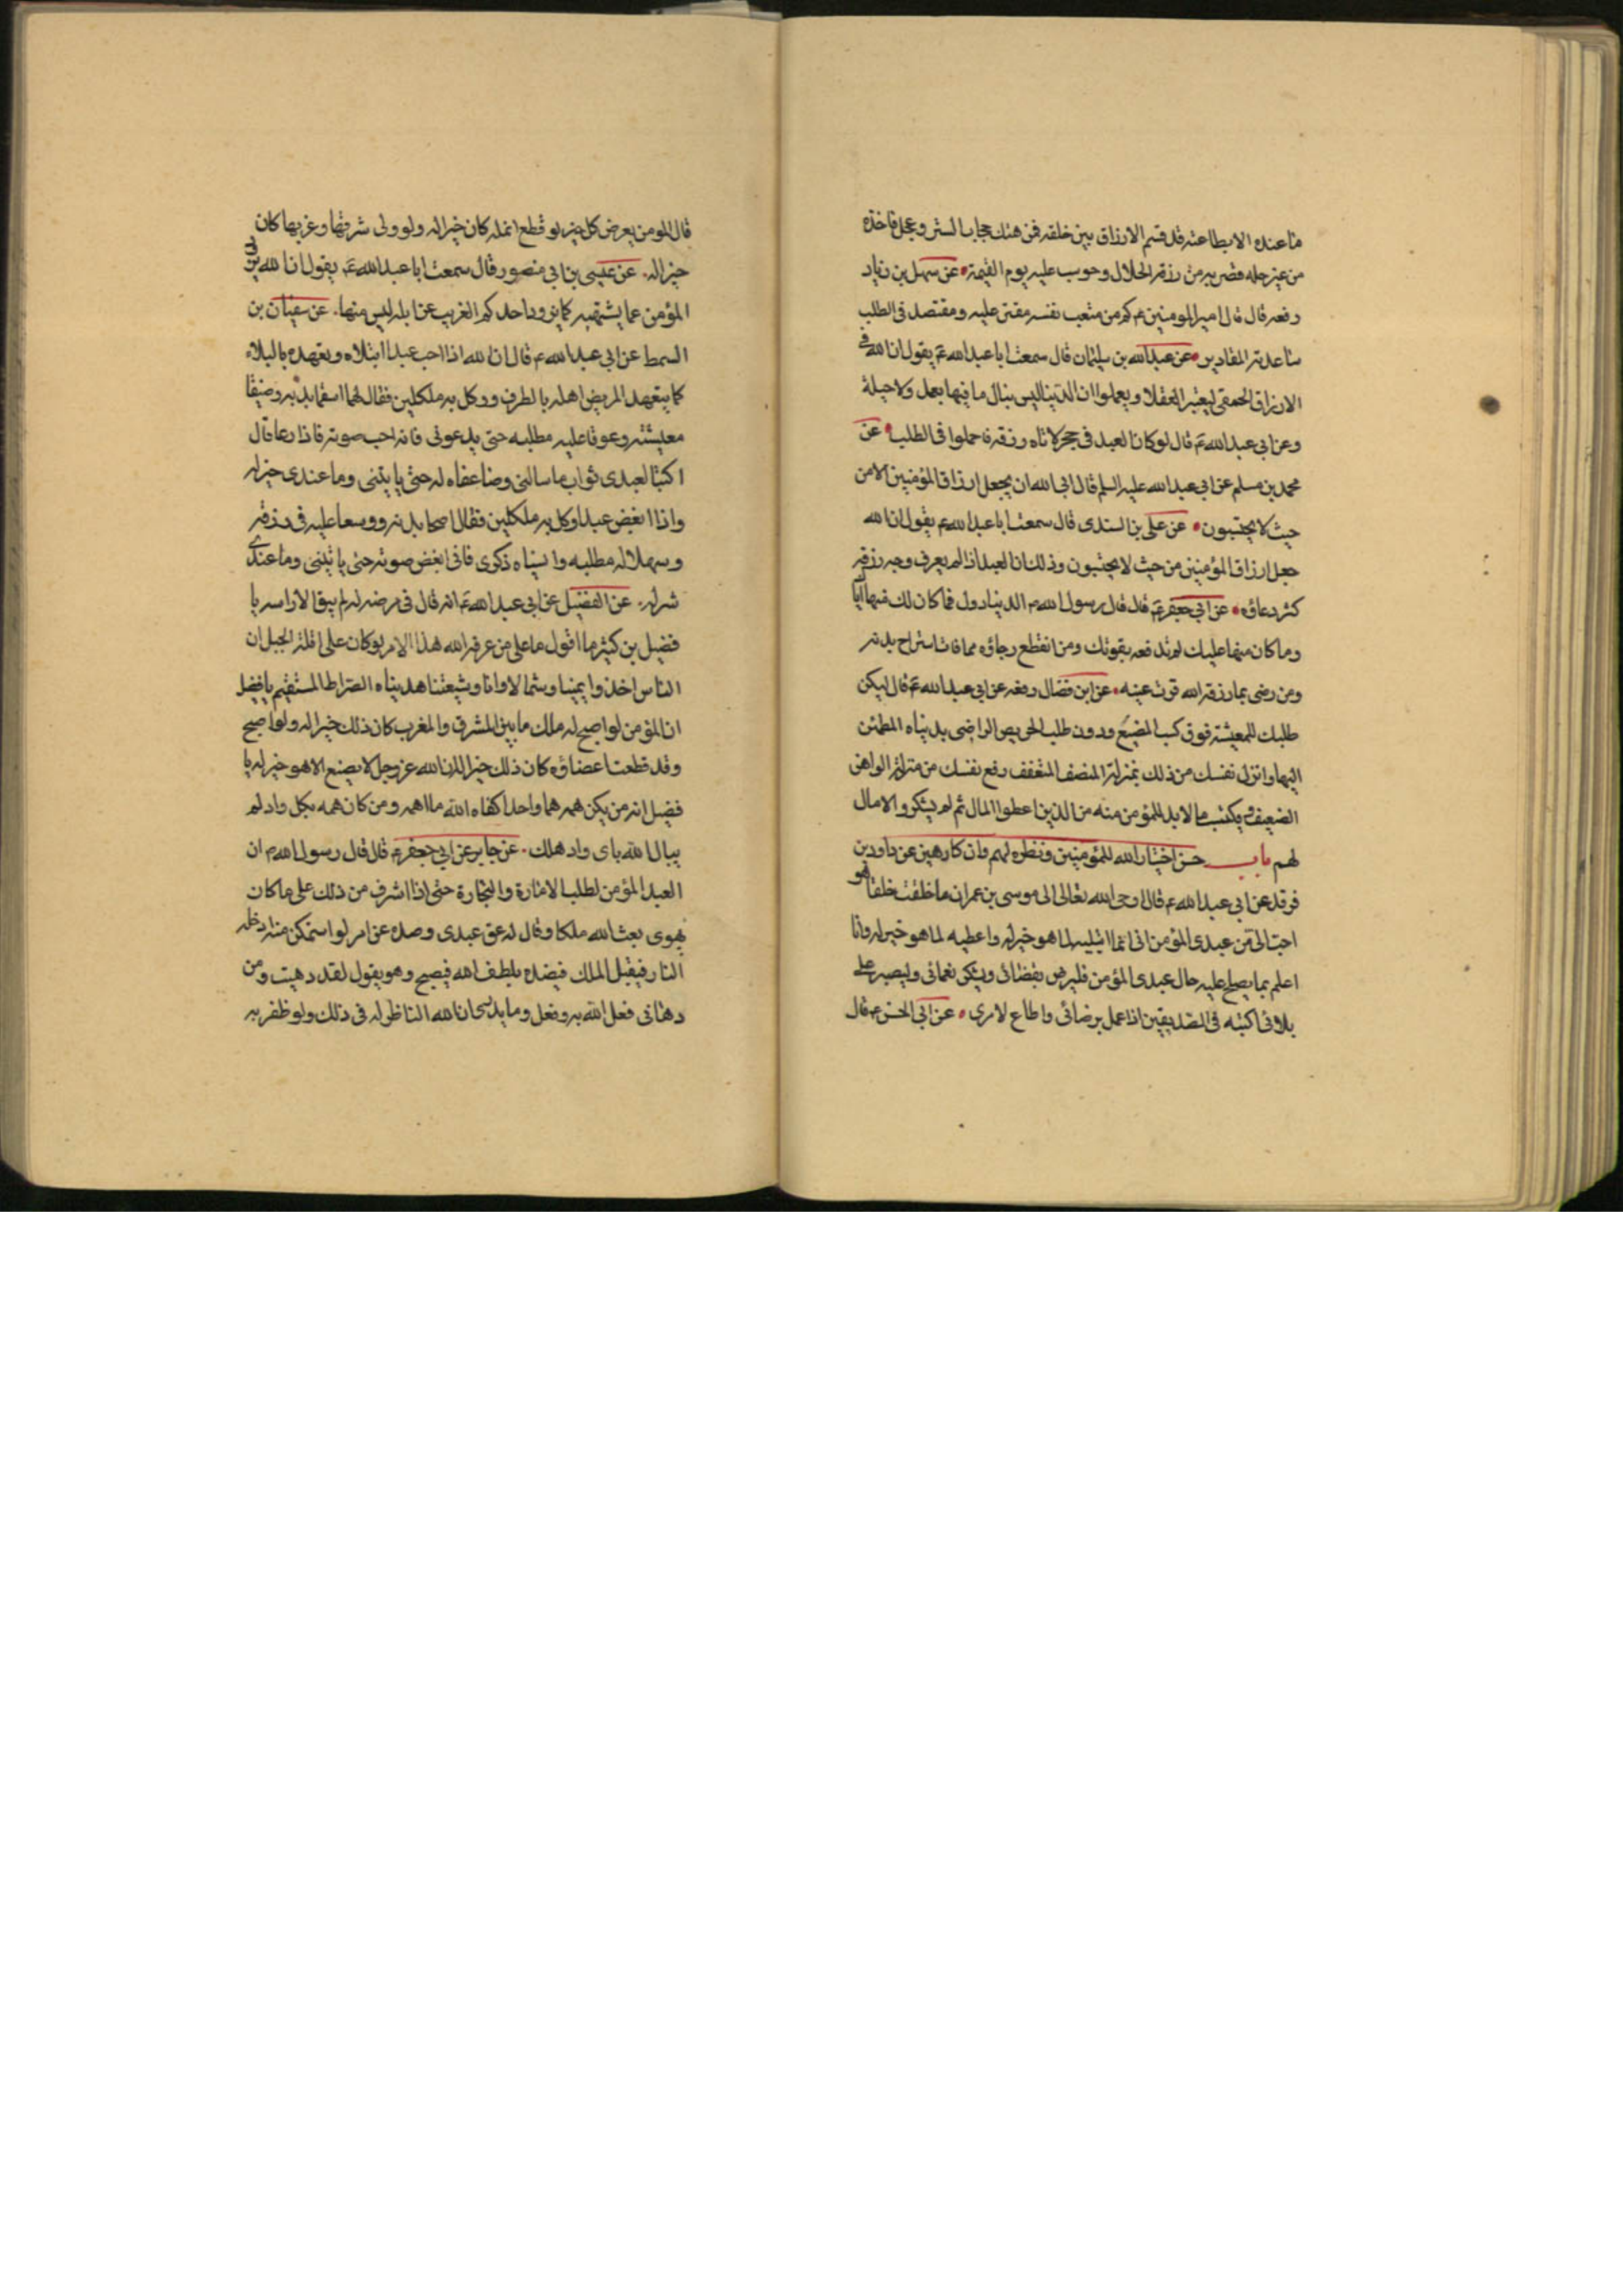 ما عنده الا بطاعته قد قسم الارزاق بين خلقه فمن هتك حجاب الستر وعجل فاخذه
من غير حله قصر به من رزقه الحلال وحوسب عليه يوم القيمة عن سهل بن زياد
رفعه قال قال امير المومنين ع كم من متعب نفسه مقتر عليه ومقتصد في الطلب
ساعدته المقادير عن عبدالله بن سليمان قال سمعت ابا عبدالله ع يقول ان الله
الارزاق الحمقى ليعتبر العقلا ويعلموا ان الدنيا ليس ينال ما فيها بعمل ولا حيلة
وعن ابي عبدالله ع قال لو كان العبد في حجر لاتاه رزقه فاجملوا في الطلب عن
محمد بن مسلم عن ابي عبدالله عليه السلم قال ابى الله ان يجعل ارزاق المؤمنين الا من
حيث لا يحتسبون عن علي بن السندى قال سمعت ابا عبدالله ع يقول ان الله
جعل ارزاق المؤمنين من حيث لا يحتسبون وذلك ان العبد اذا لم يعرف وجه رزقه
كثر دعاؤه عن ابي جعفر ع قال قال رسول الله ص الدنيا دول فما كان لك فيها اتا
وما كان منها عليك لم تدفعه بقوتك ومن انقطع رجاؤه مما فات استراح بدنه
ومن رضى بما رزقه الله قرت عينه عن ابن فضال رفعه عن ابي عبدالله ع قال ليكن
طلبك للمعيشة فوق كسب المضيع ودون طلب الحريص الراضى بدنياه المطمئن
اليها وانزل نفسك من ذلك بمنزلة المنصف المتعفف رفع نفسك من منزلة الواهن
الضعيف ويكتسب ما لا بد للمؤمن منه من الذين اعطوا المال ثم لم يشكروا لا مال
لهم باب حسن اختيار الله للمؤمنين ونظره لهم وان كارهين عن داود بن
فرقد عن ابي عبدالله ع قال اوحى الله تعالى الى موسى بن عمران ما خلقت خلقا هو
احب الى من عبدى المؤمن انى انما ابتليه لما هو خير له واعطيه لما هو خير له وانا
اعلم بما يصلح عليه حال عبدى المؤمن فليرض بقضائى ويشكر نعمائى وليصبر على
بلائى اكتبه في الصديقين اذا عمل برضائى واطاع لامرى عن ابي الحسن ع قال
قال المومن يعرض كل خير لو قطع انملة كان خيرا له ولو ولى شرقها وغربها كان
خيرا له عن عيسى بن ابي منصور قال سمعت ابا عبدالله ع يقول ان الله
المؤمن عما يشتهيه كما يزود احدكم الغريب عن ابله ليس منها عن سفيان بن
السمط عن ابي عبدالله ع قال ان الله اذا احب عبدا ابتلاه وتعهده بالبلاء
كما يتعهد المريض اهله بالطرف ووكل به ملكين فقال لهما اسقما بدنه وضيقا
معيشته وعوقا عليه مطلبه حتى يدعونى فانى احب صوته فاذا دعا قال
اكتبا لعبدى ثواب ما سالنى وضاعفاه له حتى ياتينى وما عندى خير له
واذا ابغض عبدا وكل به ملكين فقال اصحا بدنه ووسعا عليه في رزقه
وسهلا له مطلبه وانسياه ذكرى فانى ابغض صوته حتى ياتينى وما عندى
شر له عن الفضيل عن ابي عبدالله ع انه قال في مرضه له لم يبق الا راسه يا
فضيل بن كثير ما اقول ما على من عرفه الله هذا الامر لو كان على قلة الجبل ان
الناس اخذوا يمينا وشمالا وانا وشيعتنا هدينا الصراط المستقيم يا فضيل
ان المؤمن لو اصبح له ملك ما بين المشرق والمغرب كان ذلك خيرا له ولو اصبح
وقد قطعت اعضاؤه كان ذلك خيرا له ان الله عز وجل لا يصنع الا هو خير له يا
فضيل انه من يكن همه هما واحدا كفاه الله ما اهمه ومن كان همه بكل واد لم
يبال الله باى واد هلك عن جابر عن ابي جعفر ع قال قال رسول الله ص ان
العبد المؤمن لطلب الامارة والتجارة حتى اذا اشرف من ذلك على ما كان
يهوى بعث الله ملكا وقال له عق عبدى وصده عن امر لو استمكن منه ادخله
النار فيقبل الملك فيصده بلطف الله فيصبح وهو يقول لقد دهيت ومن
دهانى فعل الله به وفعل وما يدرى ان الله الناظر له في ذلك ولو ظفر به